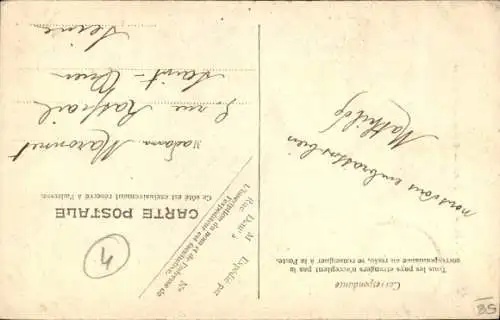 Correspondance
Tous les pays étrangers n'acceptent pas la
correspondance au recto, se renseigner à la Poste.
nous vous embrassons bien
Mathilde
Expédié par
M
Demt à
Rue
N°
L'inscription du nom et de l'adresse de
l'expéditeur est facultative.
CARTE POSTALE
Ce côté est exclusivement réservé à l'adresse.
Madame Maronnet
5 rue Raspail
Saint-Ouen
Seine
4
85